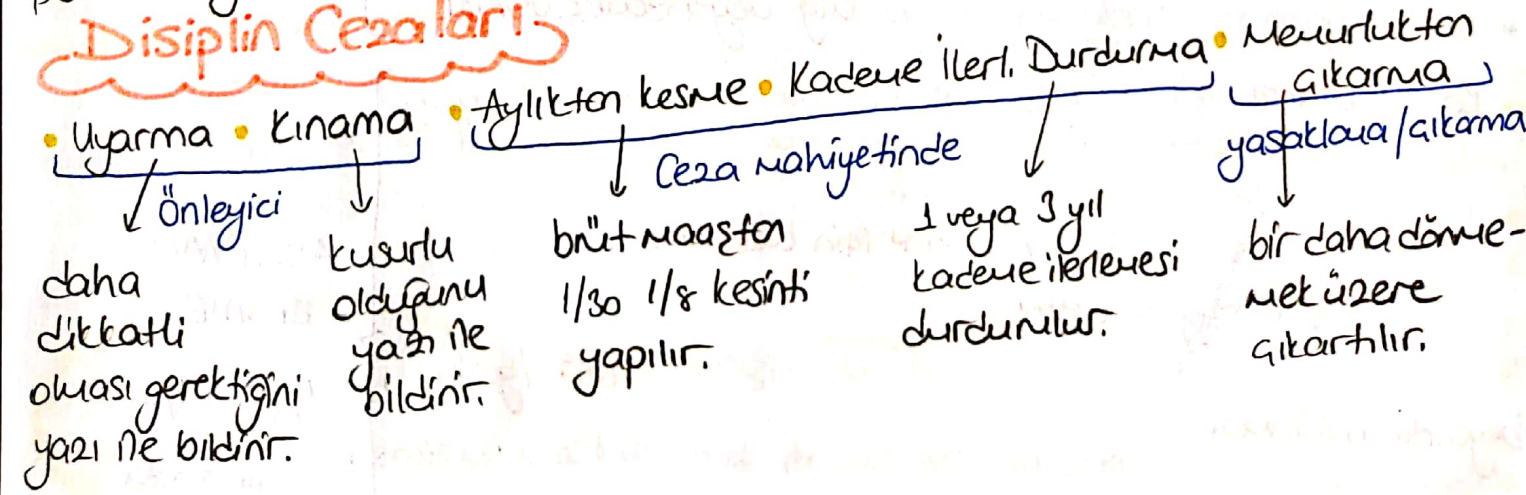 Disiplin Cezaları
• Uyarma • Kınama • Aylıkton kesme • Kademe İlerl. Durdurma • Memurlukton
çıkarma
Önleyici
Ceza mahiyetinde
yasaklama/çıkarma
daha
dikkatli
olması gerektiğini
yazı ile bildirir.
kusurlu
olduğunu
yazı ile
bildirir.
brüt maaştan
1/30 1/8 kesinti
yapılır.
1 veya 3 yıl
kademe ilerlemesi
durdurulur.
bir daha dönme-
mek üzere
çıkartılır.